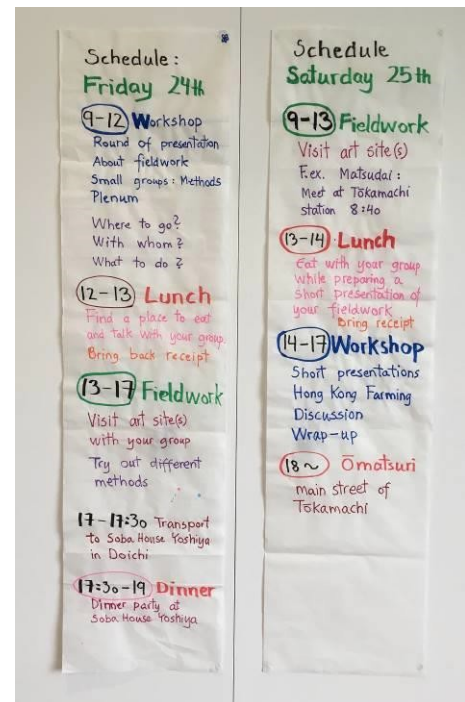 Schedule:
Friday 24th
9-12 Workshop
Round of presentation
About fieldwork
Small groups: Methods
Plenum
Where to go?
With whom?
What to do?
12-13 Lunch
Find a place to eat
and talk with your group.
Bring back receipt
13-17 Fieldwork
Visit art site(s)
with your group
Try out different
methods
17-17:30 Transport
to Soba House Yoshiya
in Doichi
17:30-19 Dinner
Dinner party at
Soba House Yoshiya
Schedule
Saturday 25th
9-13 Fieldwork
Visit art site(s)
F.ex. Matsudai:
Meet at Tōkamachi
station 8:40
13-14 Lunch
Eat with your group
while preparing a
short presentation of
your fieldwork
Bring receipt
14-17 Workshop
Short presentations
Hong Kong Farming
Discussion
Wrap-up
18~ Ōmatsuri
main street of
Tōkamachi